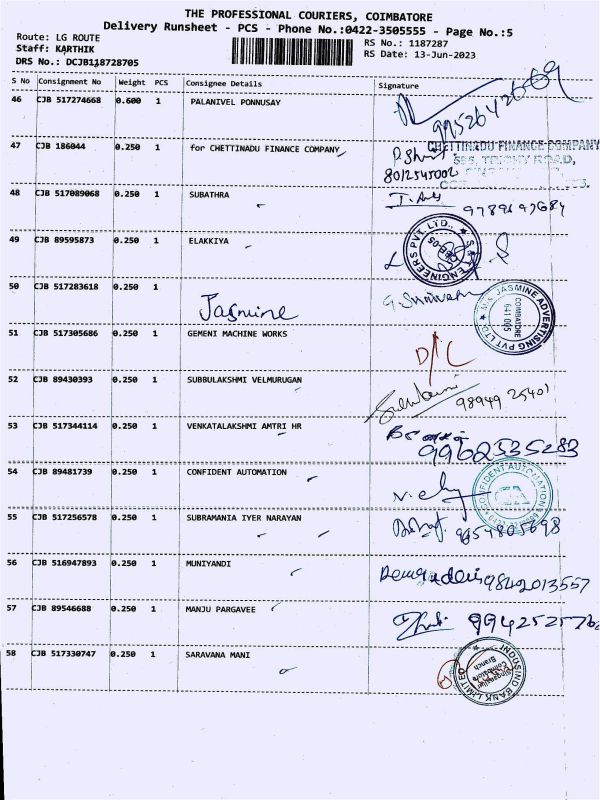 THE PROFESSIONAL COURIERS, COIMBATORE
Delivery Runsheet - PCS - Phone No.:0422-3505555 - Page No.:5
Route: LG ROUTE
Staff: KARTHIK
DRS No.: DCJB118728705
RS No.: 1187287
RS Date: 13-Jun-2023
S No Consignment No Weight PCS Consignee Details Signature
46 CJB 517274668 0.600 1 PALANIVEL PONNUSAY
9952642669
47 CJB 186044 0.250 1 for CHETTINADU FINANCE COMPANY
8012545002
CHETTINADU FINANCE COMPANY
585, TRICHY ROAD,
48 CJB 517089068 0.250 1 SUBATHRA
49 CJB 89595873 0.250 1 ELAKKIYA
ENGINEERS PVT LTD.,
50 CJB 517283618 0.250 1 Jasmine
M/s. JASMINE ADVERTISING PVT LTD
COIMBATORE
641 005
51 CJB 517305686 0.250 1 GEMENI MACHINE WORKS D/C
52 CJB 89430393 0.250 1 SUBBULAKSHMI VELMURUGAN
98949 25401
53 CJB 517344114 0.250 1 VENKATALAKSHMI AMTRI HR
9962535283
54 CJB 89481739 0.250 1 CONFIDENT AUTOMATION
CONFIDENT AUTOMATION
CA
55 CJB 517256578 0.250 1 SUBRAMANIA IYER NARAYAN
56 CJB 516947893 0.250 1 MUNIYANDI
9842013557
57 CJB 89546688 0.250 1 MANJU PARGAVEE
9942525762
58 CJB 517330747 0.250 1 SARAVANA MANI
INDUSIND BANK LIMITED
Singanallur
Coimbatore
Branch